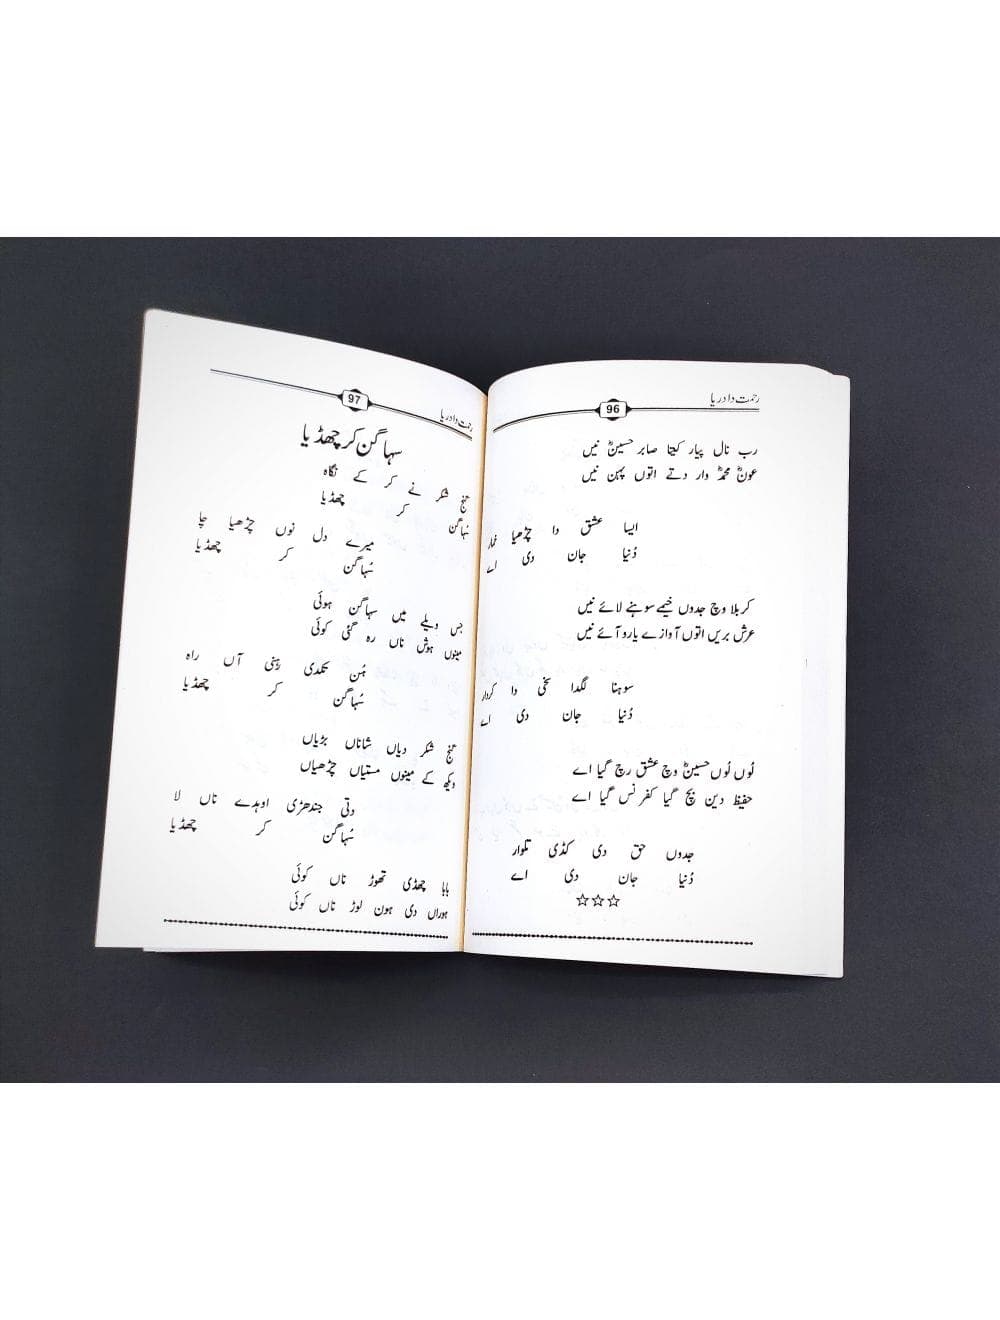 رحمت دا دریا
96
رب نال پیار کیتا صابر حسینؓ نیں
عونؓ محمدؓ وار دتے اتوں پہن نیں
ایسا عشق دا چڑھیا خمار
دُنیا جان دی اے
کربلا وچ جدوں خیمے سوہنے لائے نیں
عرش بریں اتوں آوازے یارو آئے نیں
سوہنا لگدا سخی دا کردار
دُنیا جان دی اے
لُوں لُوں حسینؓ وچ عشق رچ گیا اے
حفیظ دین بچ گیا کفر نس گیا اے
جدوں حق دی کڈی تلوار
دُنیا جان دی اے
☆☆☆
رحمت دا دریا
97
سہاگن کر چھڈیا
گنج شکر نے کر کے نگاہ
سُہاگن کر چھڈیا
میرے دل نوں چڑھیا چا
سُہاگن کر چھڈیا
جس ویلے میں سہاگن ہوئی
مینوں ہوش ناں رہ گئی کوئی
ہُن تکدی رہنی آں راہ
سُہاگن کر چھڈیا
گنج شکر دیاں شاناں بڑیاں
ویکھ کے مینوں مستیاں چڑھیاں
دتی جندھڑی اوہدے ناں لا
سُہاگن کر چھڈیا
بابا چھڈی تھوڑ ناں کوئی
ہوراں دی ہون لوڑ ناں کوئی